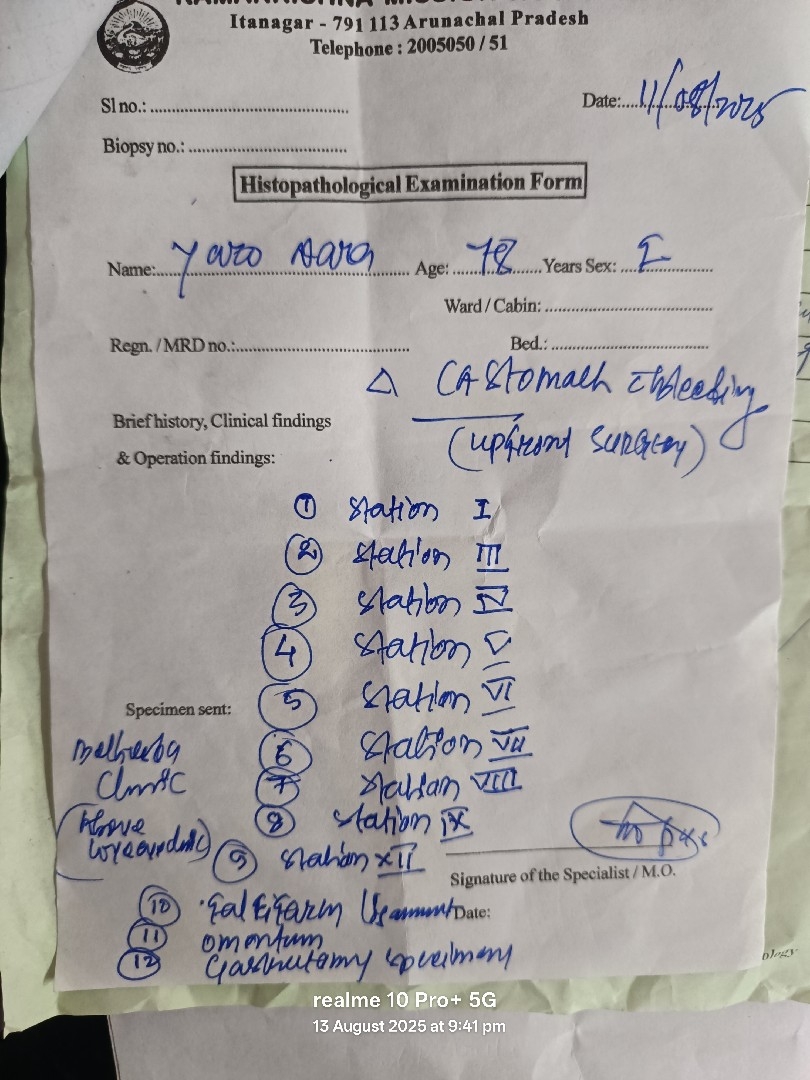 Itanagar - 791 113 Arunachal Pradesh
Telephone : 2005050 / 51
Sl no.:
Date: 11/08/2025
Biopsy no.:
Histopathological Examination Form
Name: Yaro Age: 78 Years Sex:
Ward / Cabin:
Regn. / MRD no.:
Bed.:
△ CA Stomach c bleeding
Brief history, Clinical findings
(upfront surgery)
& Operation findings:
① Station I
② Station III
③ Station IV
④ Station V
⑤ Station VI
Specimen sent:
⑥ Station VII
Clinic
⑦ Station VIII
(Above
⑧ Station IX
⑨ Station XII
Signature of the Specialist / M.O.
⑩ Falciform ligament
Date:
⑪ omentum
⑫ Gastrectomy specimen
ology
realme 10 Pro+ 5G
13 August 2025 at 9:41 pm